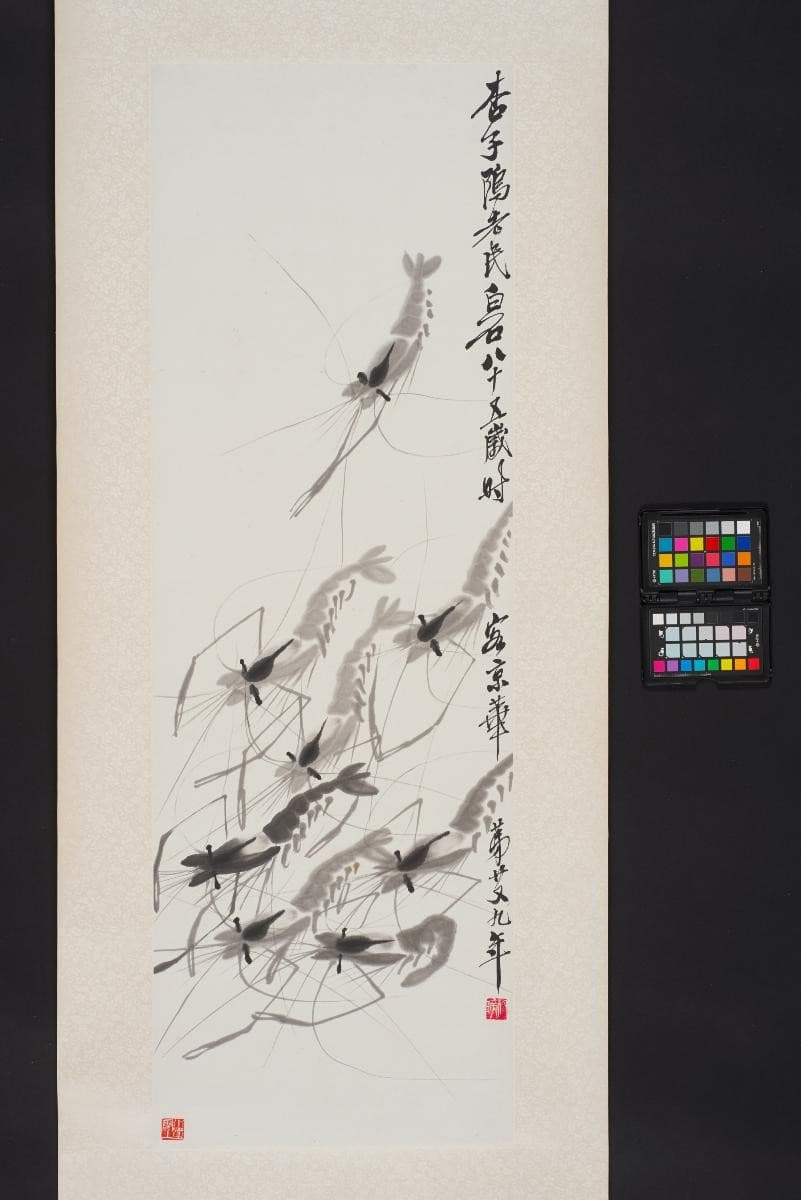 杏子隖老民白石八十五歲時客京華第廿又九年